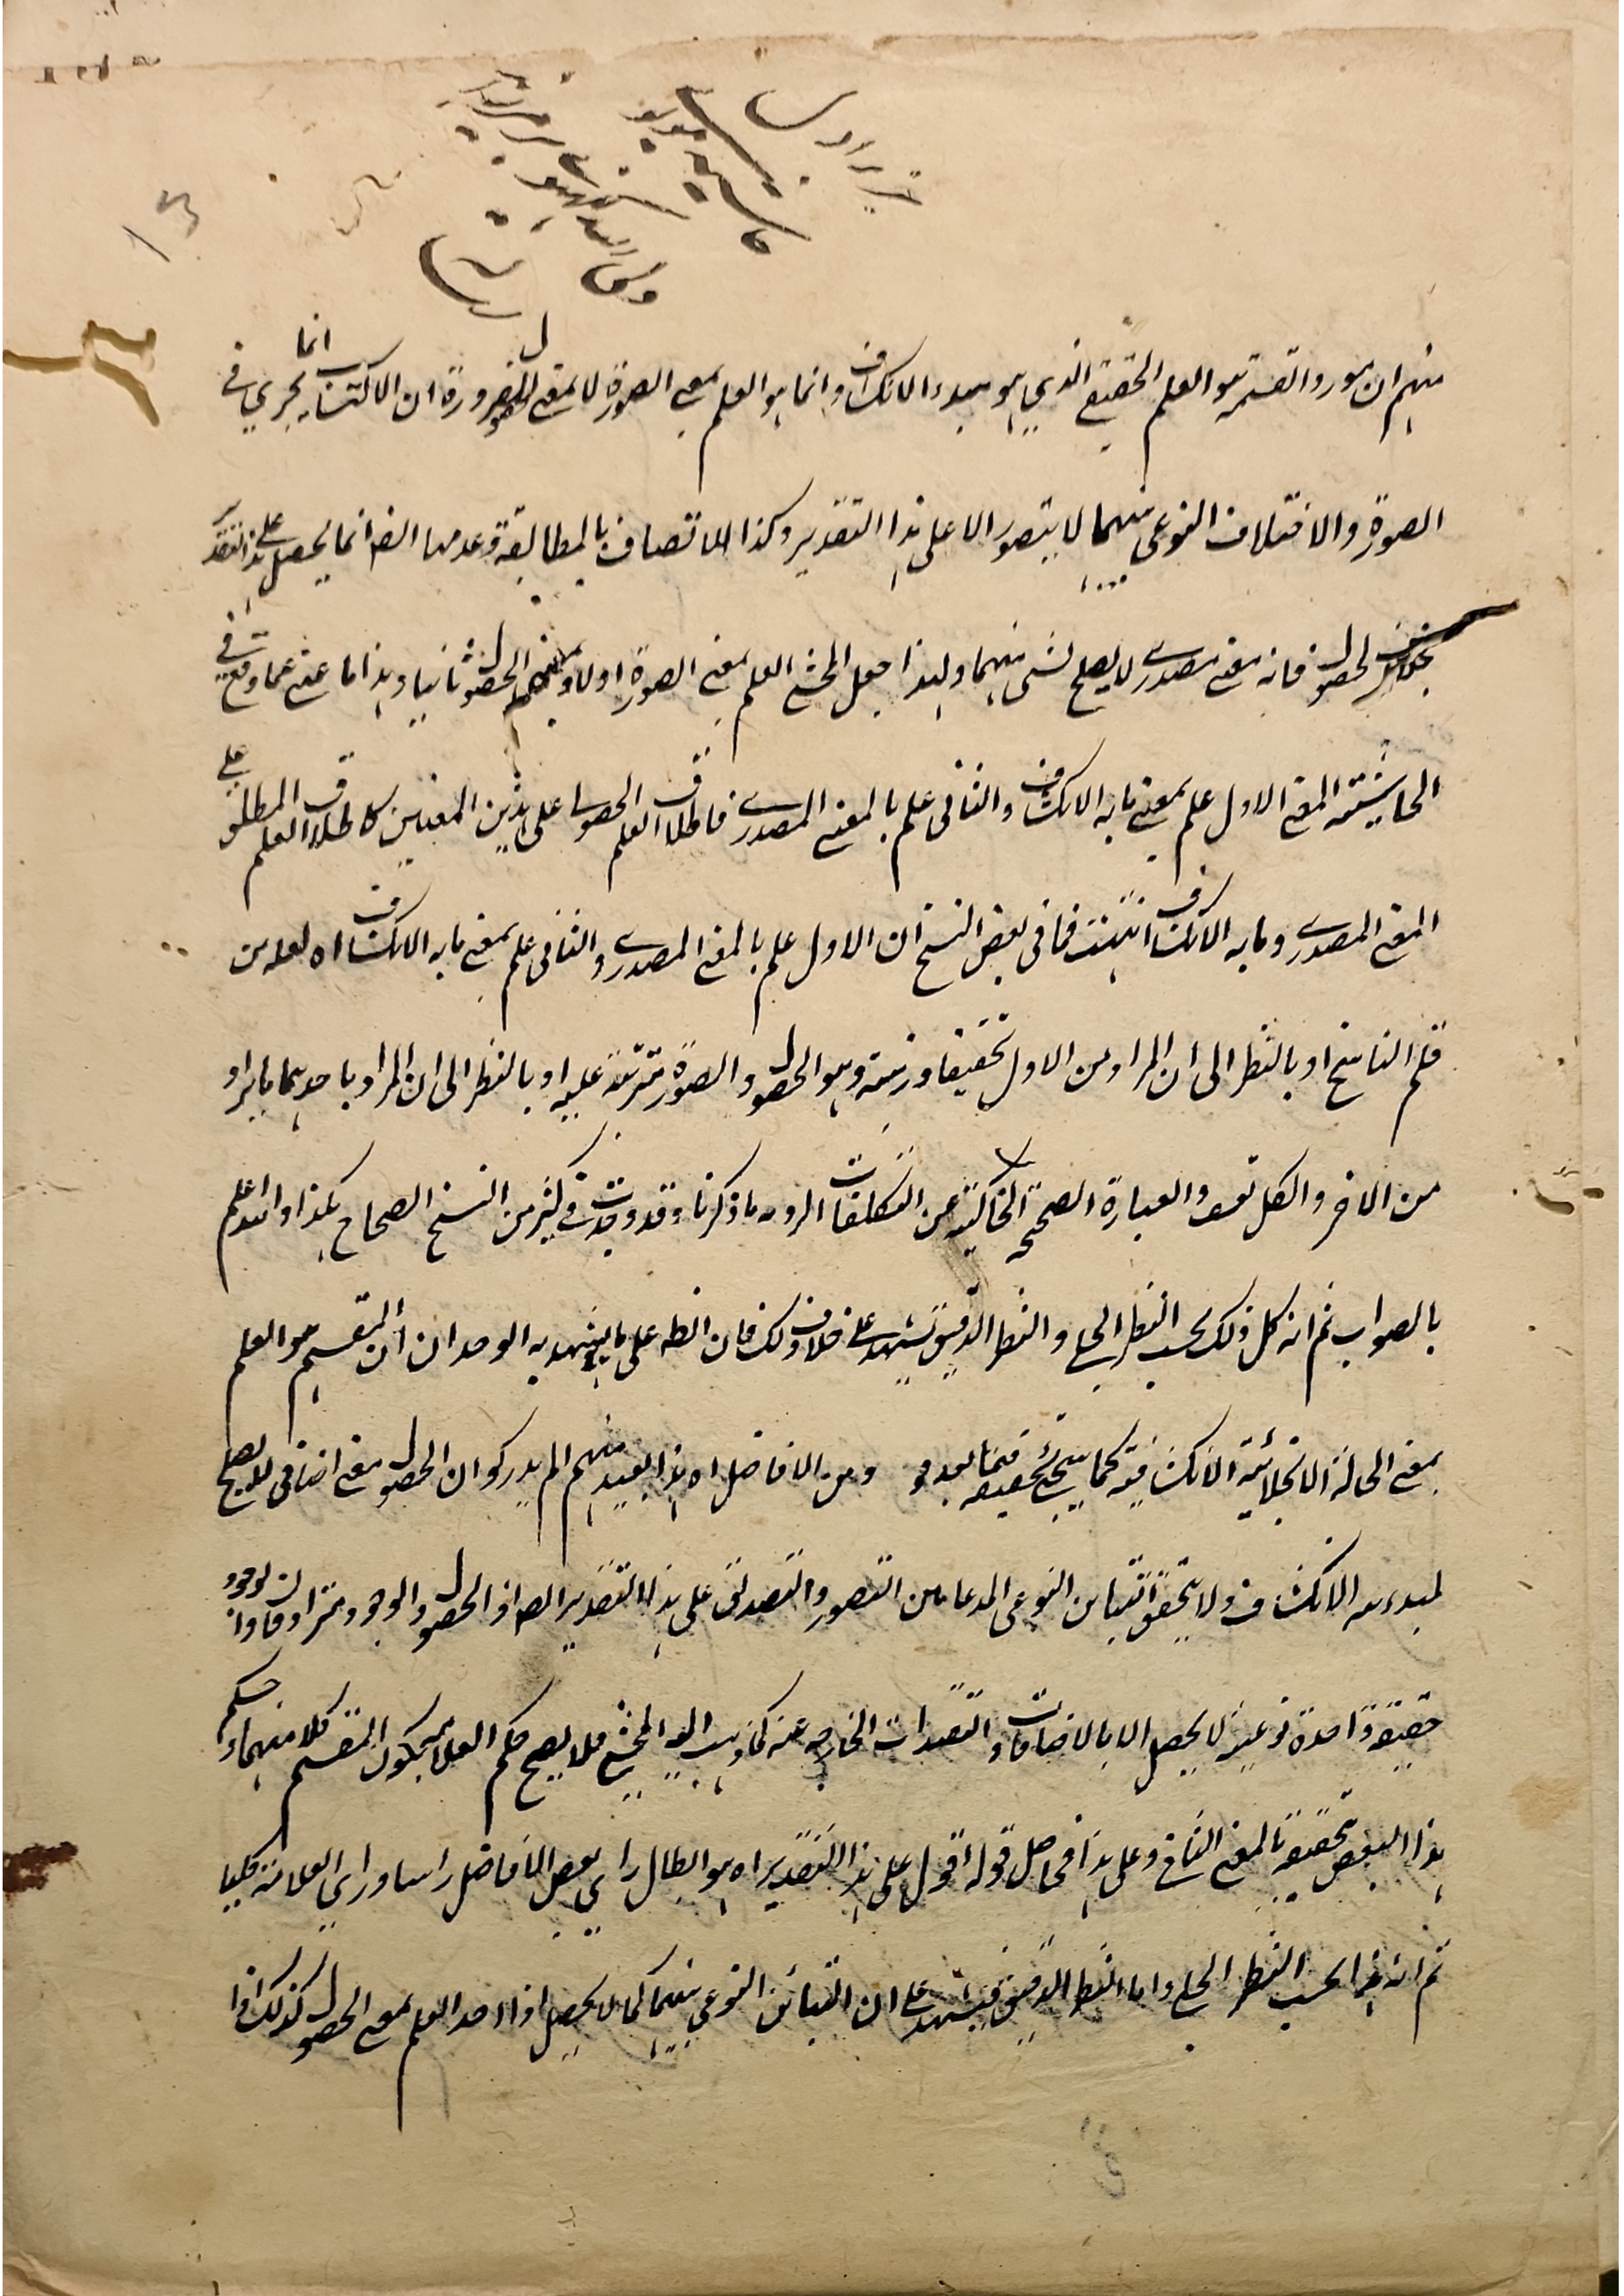 منهم ان مورد القسمة هو العلم الحقيقي الذي هو مبدء الانكشاف وانما هو العلم بمعنى الصورة لا بمعنى الحصول ضرورة ان الاكتساب انما يجري في
الصورة والاختلاف النوعي بينهما لا يتصور الا على هذا التقدير وكذا الاتصاف بالمطابقة وعدمها ايضا انما يحصل على هذا التقدير
بخلاف الحصول فانه معنى مصدري لا يصلح لشئ منهما ولهذا جعل المحشي العلم بمعنى الصورة اولا وبمعنى الحصول ثانيا وهذا ما عني عما وقع في
الحاشية المعنى الاول علم بمعنى ما به الانكشاف والثاني علم بالمعنى المصدري فاطلاق العلم الحصولي على هذين المعنيين كاطلاق العلم المطلق على
المعنى المصدري وما به الانكشاف انتهت فما في بعض النسخ ان الاول علم بالمعنى المصدري والثاني علم بمعنى ما به الانكشاف اه لعله من
قلم الناسخ او بالنظر الى ان المراد من الاول تحقيقا ورتبة وهو الحصول والصورة مترتبة عليه او بالنظر الى ان المراد باحدهما ما يراد
من الاخر والكل تعسف والعبارة الصحيحة الخالية عن التكلفات الردية ما ذكرنا وقد وجدت في كثير من النسخ الصحاح هكذا والله اعلم
بالصواب ثم انه كل ذلك بحسب النظر الجلي والنظر الدقيق يشهد على خلاف ذلك فان الظ على ما يشهد به الوجدان ان المقسم هو العلم
بمعنى الحالة الانجلائية الانكشافية كما سيجئ تحقيقه فيما بعد هو ومن الافاضل اه هذا البعيد منهم لم يدركوا ان الحصول معنى اضافي لا يصلح
لمبدئية الانكشاف ولا يتحقق التباين النوعي المدعا من التصور والتصديق على هذا التقدير ايضا اذ الحصول والوجود مترادفان والوجود
حقيقة واحدة نوعية لا يحصل الا بالاضافات والتقييدات الخارجة عنه كما ذهب اليه المحشي فلا يصح حكم العلامة بكون المقسم كلا منهما وحكم
هذا البعض تحقيقه بالمعنى الثاني وعلى هذا فحاصل قوله اقول على هذا التقدير اه هو ابطال راي بعض الافاضل راسا وراي العلامة كليا
ثم انه هذا بحسب النظر الجلي واما النظر الدقيق فيشهد على ان التباين النوعي بينهما كما لا يحصل اذا اخذ العلم بمعنى الحصول كذلك اذا